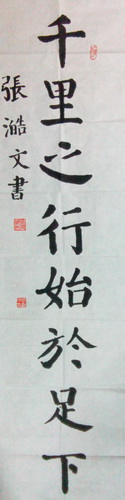 千里之行始於足下
張澔文書